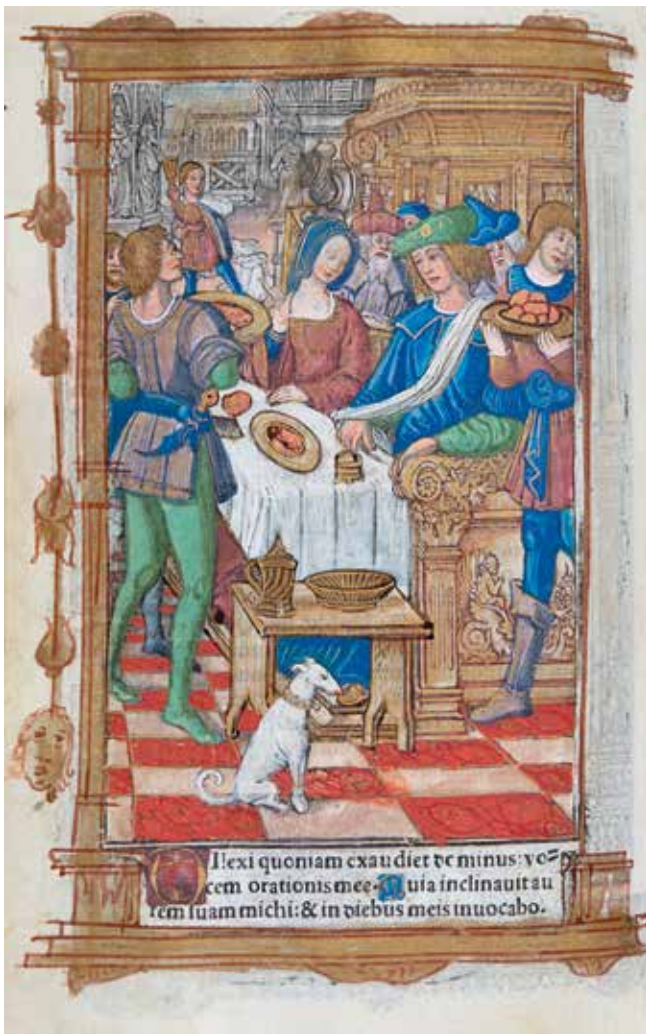 Dilexi quoniam exaudiet dominus: vo=
cem orationis mee. Quia inclinauit au
rem suam michi: & in diebus meis inuocabo.